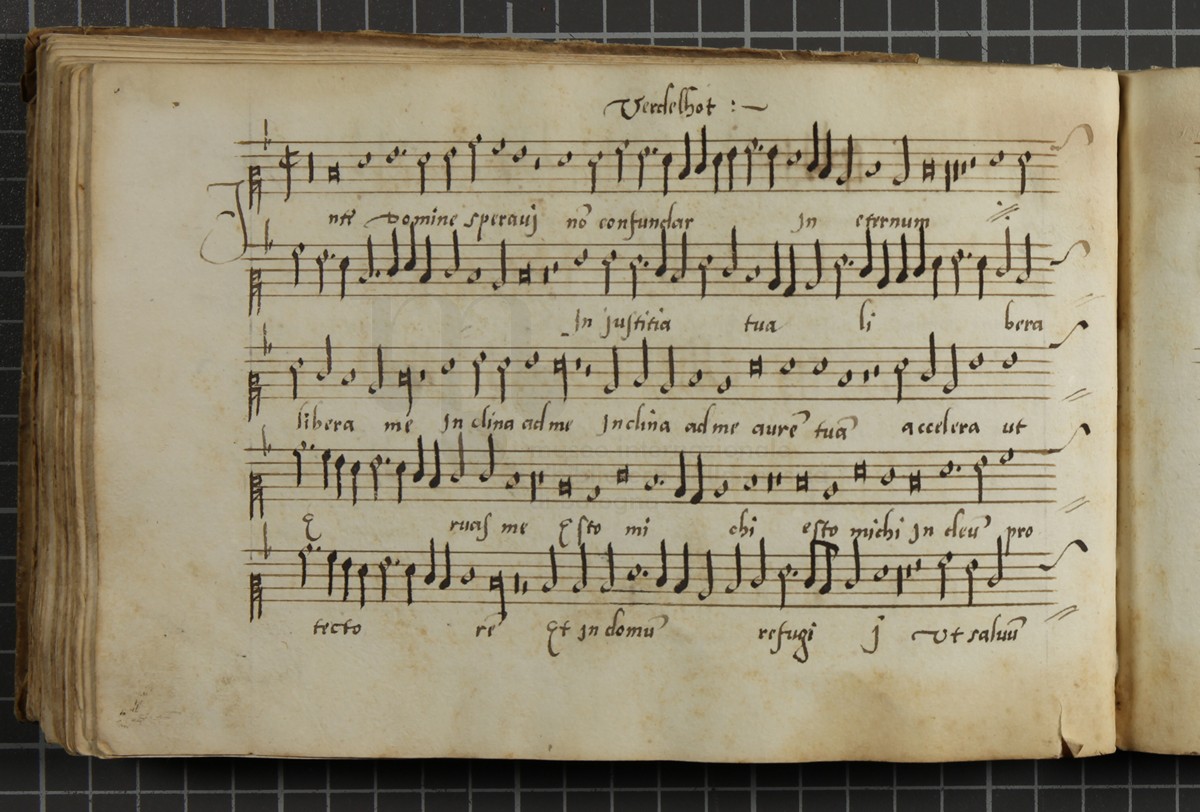 Verdelhot :~
Inte Domine speravi nō confundar In eternum
In justitia tua li bera
libera me In clina ad me Inclina ad me aurē tuā accelera ut
E ruas me Esto mi chi esto michi In deū pro
tecto rē Et in domū refugi j Ut salvū